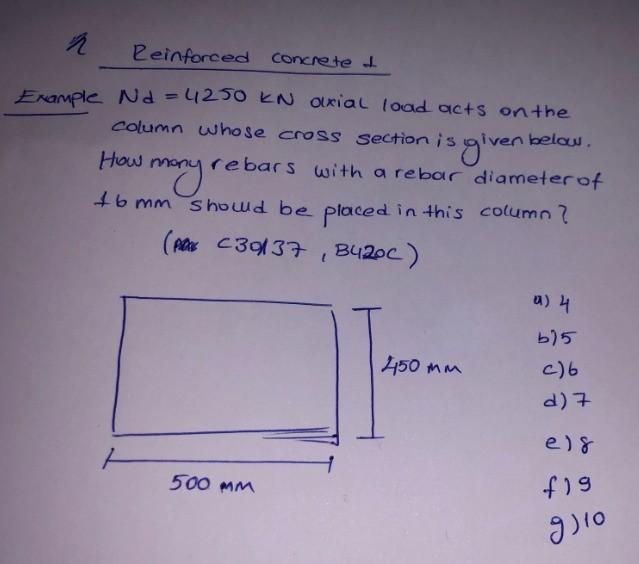 Reinforced concrete 1
Example Nd = 4250 kN axial load acts on the
column whose cross section is given below.
How many rebars with a rebar diameter of
16 mm should be placed in this column?
( C30/37 , B420C)
a) 4
b) 5
450 mm
c) 6
d) 7
e) 8
500 mm
f) 9
g) 10